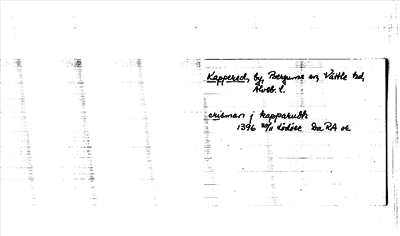 Kappered, by, Bergums sn, Vättle hd,
Älvsb. l.
crisman j kapparudh
1396 29/11 Lödöse Da RA or